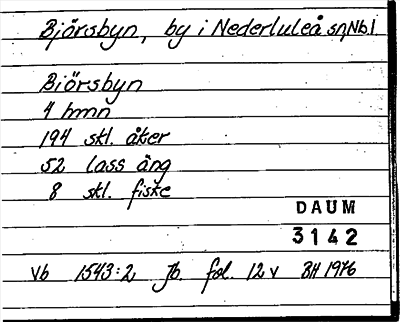 Björsbyn, by i Nederluleå sn, Nb.l
Biörsbyn
4 hmn
194 skl. åker
52 lass äng
8 skl. fiske
DAUM
3142
Vb 1543:2 Jb. fol. 12v BH 1976